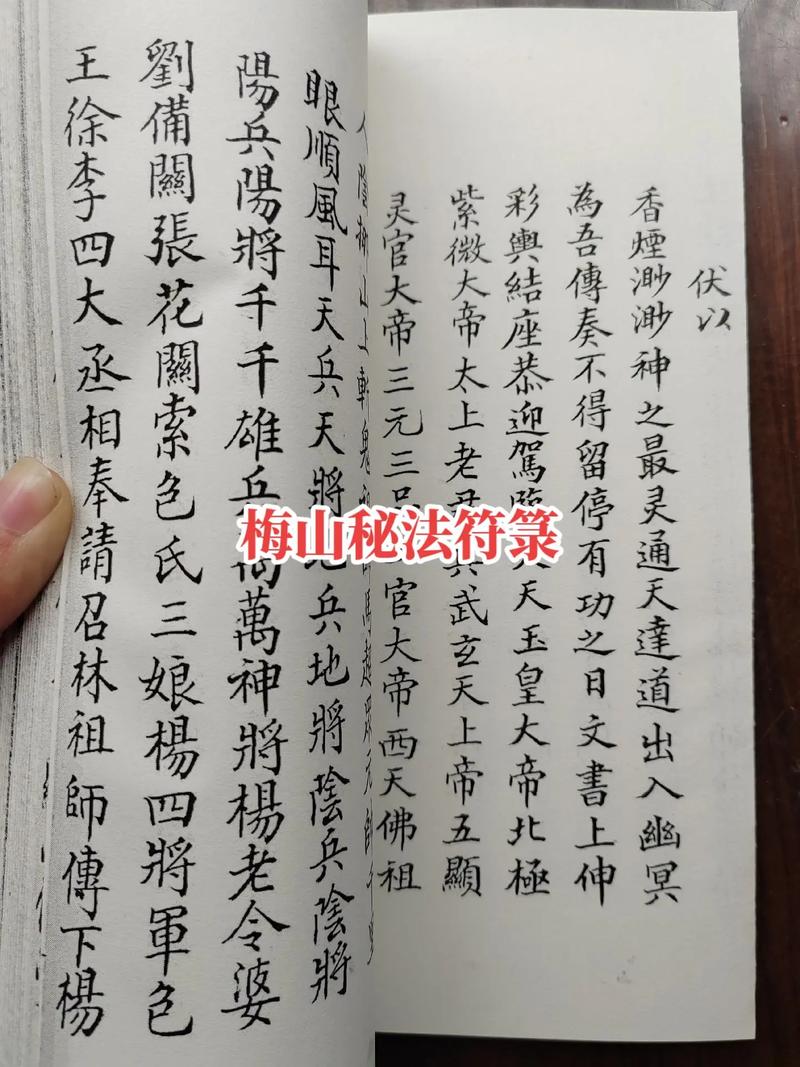 伏以
香煙渺渺神之最灵通天達道出入幽冥
為吾傳奏不得留停有功之日文書上伸
彩輿結座恭迎駕臨天玉皇大帝北極
紫微大帝太上老君武玄天上帝五顯
灵官大帝三元三品官大帝西天佛祖
眼順風耳天兵天將地兵地將陰兵陰將
陽兵陽將千千雄兵萬萬神將楊老令婆
劉備關張花關索色氏三娘楊四將軍色
王徐李四大丞相奉請召林祖師傳下楊
梅山秘法符箓